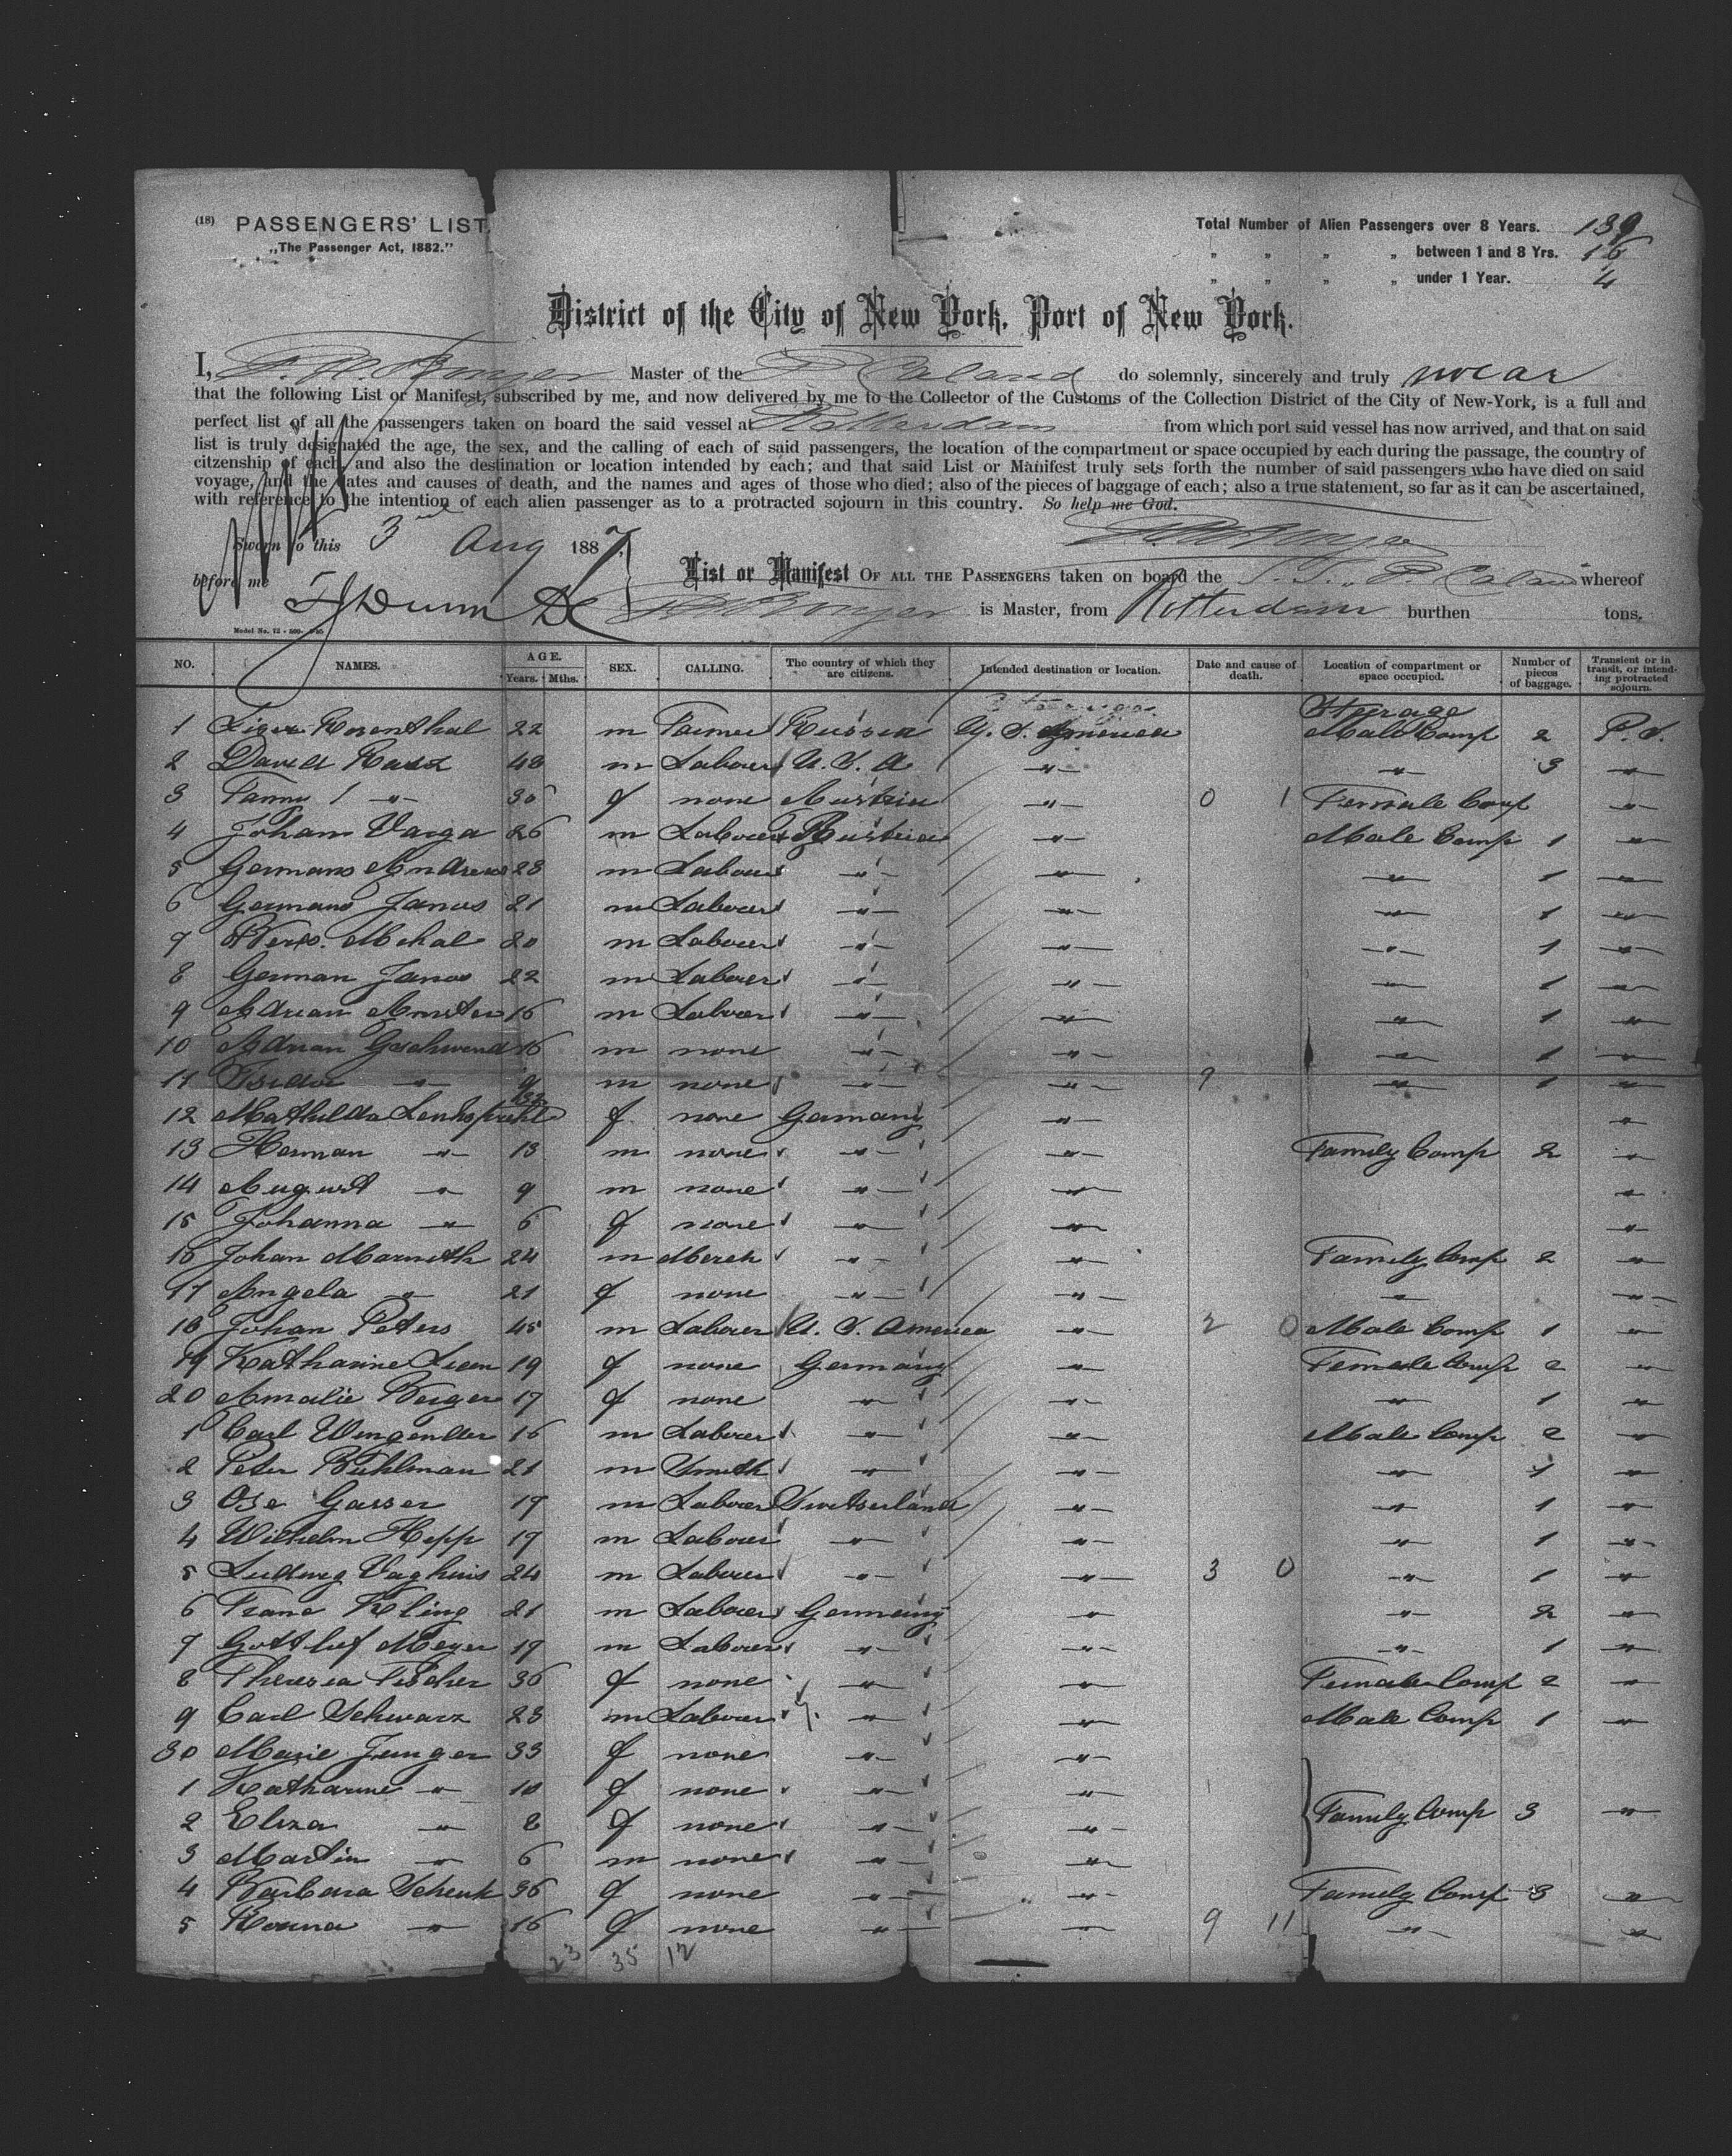 (18) PASSENGERS' LIST.
„The Passenger Act, 1882."
Total Number of Alien Passengers over 8 Years. 139
„ „ „ „ between 1 and 8 Yrs. 16
„ „ „ „ under 1 Year. 4
District of the City of New York, Port of New York.
I, Master of the P Caland do solemnly, sincerely and truly swear
that the following List or Manifest, subscribed by me, and now delivered by me to the Collector of the Customs of the Collection District of the City of New-York, is a full and
perfect list of all the passengers taken on board the said vessel at Rotterdam from which port said vessel has now arrived, and that on said
list is truly designated the age, the sex, and the calling of each of said passengers, the location of the compartment or space occupied by each during the passage, the country of
citzenship of each, and also the destination or location intended by each; and that said List or Manifest truly sets forth the number of said passengers who have died on said
voyage, and the dates and causes of death, and the names and ages of those who died; also of the pieces of baggage of each; also a true statement, so far as it can be ascertained,
with reference to the intention of each alien passenger as to a protracted sojourn in this country. So help me God.
Sworn to this 3 Aug 1887,
before me
List or Manifest OF ALL THE PASSENGERS taken on board the S.S. „P. Caland" whereof
is Master, from Rotterdam burthen tons.
NO. NAMES. AGE. Years. Mths. SEX. CALLING. The country of which they are citizens. Intended destination or location. Date and cause of death. Location of compartment or space occupied. Number of pieces of baggage. Transient or in transit, or intending protracted sojourn.
Steerage
1 Rosenthal 22 m Farmer Russia U. S. America Male Comp 2 P. S.
2 David 48 m Labourer U. S. A „ „ 3 „
3 Fanny „ 30 f none Austria „ 0 1 Female Comp „
4 Johann Varga 26 m Labourer Austria „ Male Comp 1 „
5 Germans Andreas 28 m Labourer „ „ „ 1 „
6 Germans Janos 21 m Labourer „ „ „ 1 „
7 Mihal 20 m Labourer „ „ „ 1 „
8 German Janos 22 m Labourer „ „ „ 1 „
9 Adrian 16 m Labourer „ „ „ 1 „
10 Adrian Geschwend 16 m none „ „ „ 1 „
11 Isidor „ 9 m none „ „ 9 „ 1 „
12 Mathilda f none Germany „ „
13 Herman „ 13 m none „ „ Family Comp 2 „
14 August „ 9 m none „ „ „
15 Johanna „ 6 f none „ „ „
16 Johan 24 m Merch „ „ Family Comp 2 „
17 Angela „ 21 f none „ „ „ „
18 Johan Peters 45 m Labourer U. S. America „ 2 0 Male Comp 1 „
19 Katharine 19 f none Germany „ Female Comp 2 „
20 Amalie Berger 17 f none „ „ „ 1 „
1 Carl Wengenller 16 m Labourer „ „ Male Comp 2 „
2 Peter Bühlman 21 m Smith „ „ „ 1 „
3 Gasser 17 m Labourer Switserland „ „ 1 „
4 Wilhelm Hepp 17 m Labourer „ „ „ 1 „
5 Ludwig 24 m Labourer „ „ 3 0 „ 1 „
6 Franc Kling 21 m Labourer Germany „ „ 2 „
7 Gottlief Meyer 17 m Labourer „ „ „ 1 „
8 Theresia Fischer 36 f none „ „ Female Comp 2 „
9 Carl Schwarz 23 m Labourer „ „ Male Comp 1 „
30 Marie Junger 33 f none „ „
1 Katharine „ 10 f none „ „
2 Eliza „ 8 f none „ „ Family Comp 3 „
3 Martin „ 6 m none „ „
4 Barbara Schenk 36 f none „ „ Family Comp 3 „
5 „ 16 f none „ „ 9 11 „ „
23 35 12